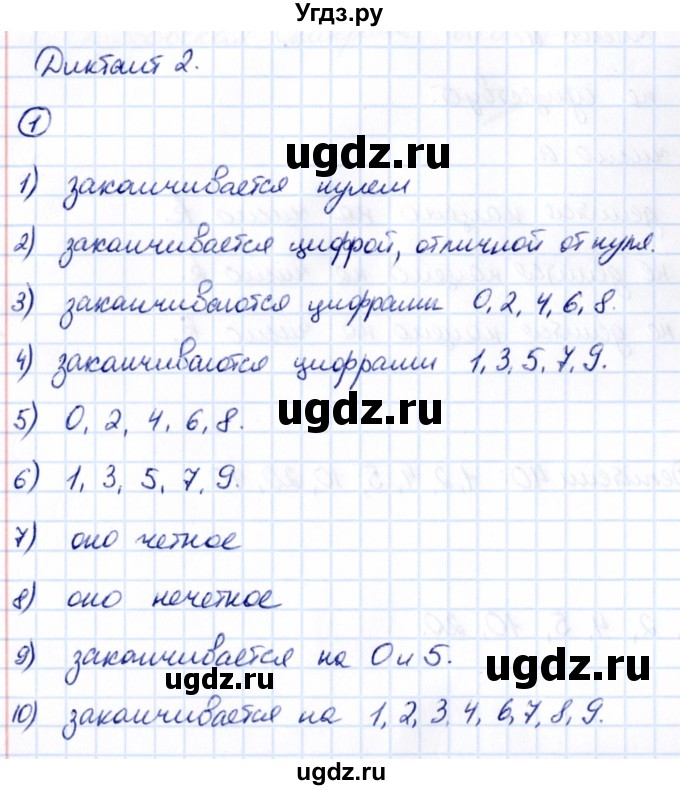 Угдз.ру
Диктант 2.
1
ugdz.ru
1) заканчивается нулем
2) заканчивается цифрой, отличной от нуля.
3) заканчиваются цифрами 0, 2, 4, 6, 8.
4) заканчиваются цифрами 1, 3, 5, 7, 9.
ugdz.ru
5) 0, 2, 4, 6, 8.
6) 1, 3, 5, 7, 9.
7) оно четное
8) оно нечетное
9) заканчивается на 0 и 5.
ugdz.ru
ugdz.ru
10) заканчивается на 1, 2, 3, 4, 6, 7, 8, 9.
ugdz.ru